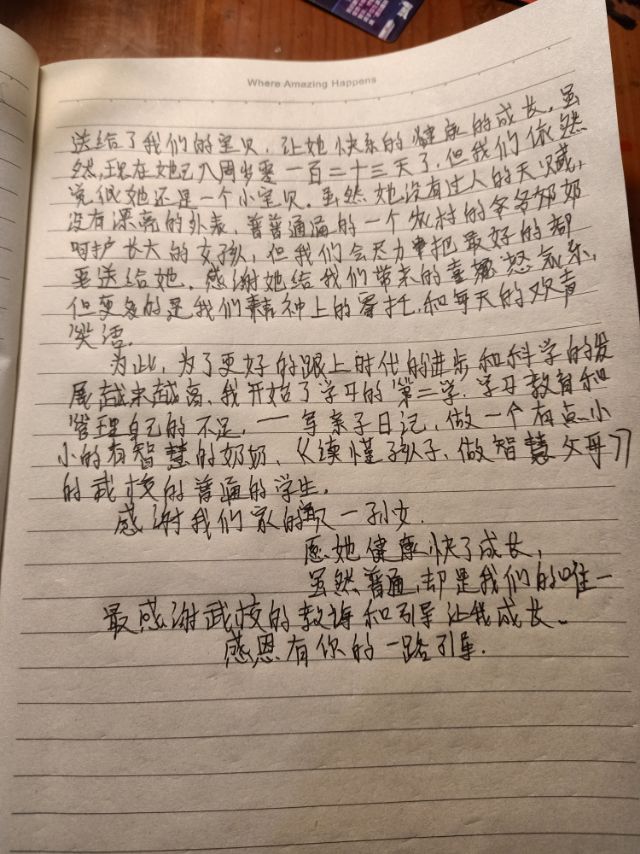 Where Amazing Happens
送给了我们的宝贝，让她快乐的健康的成长。虽
然，现在她已八周岁零一百二十三天了，但我们依然
觉得她还是一个小宝贝。虽然她没有过人的天赋，
没有漂亮的外表，普普通通的一个农村的爷爷奶奶
呵护长大的女孩，但我们会尽力把最好的都
要送给她。感谢她给我们带来的喜怒气乐，
但更多的是我们精神上的寄托，和每天的欢声
笑语。
为此，为了更好的跟上时代的进步和科学的发
展越来越高，我开始了学习的"第二学"学习教育和
管理自己的不足，一写亲子日记，做一个有点小
小的有智慧的奶奶、《读懂孩子，做智慧父母》
的武校的普通的学生。
感谢我们家的一孙女.
愿她健康快了成长，
虽然普通，却是我们的唯一
最感谢武校的教诲和引导让我成长。
感恩有你的一路引导.